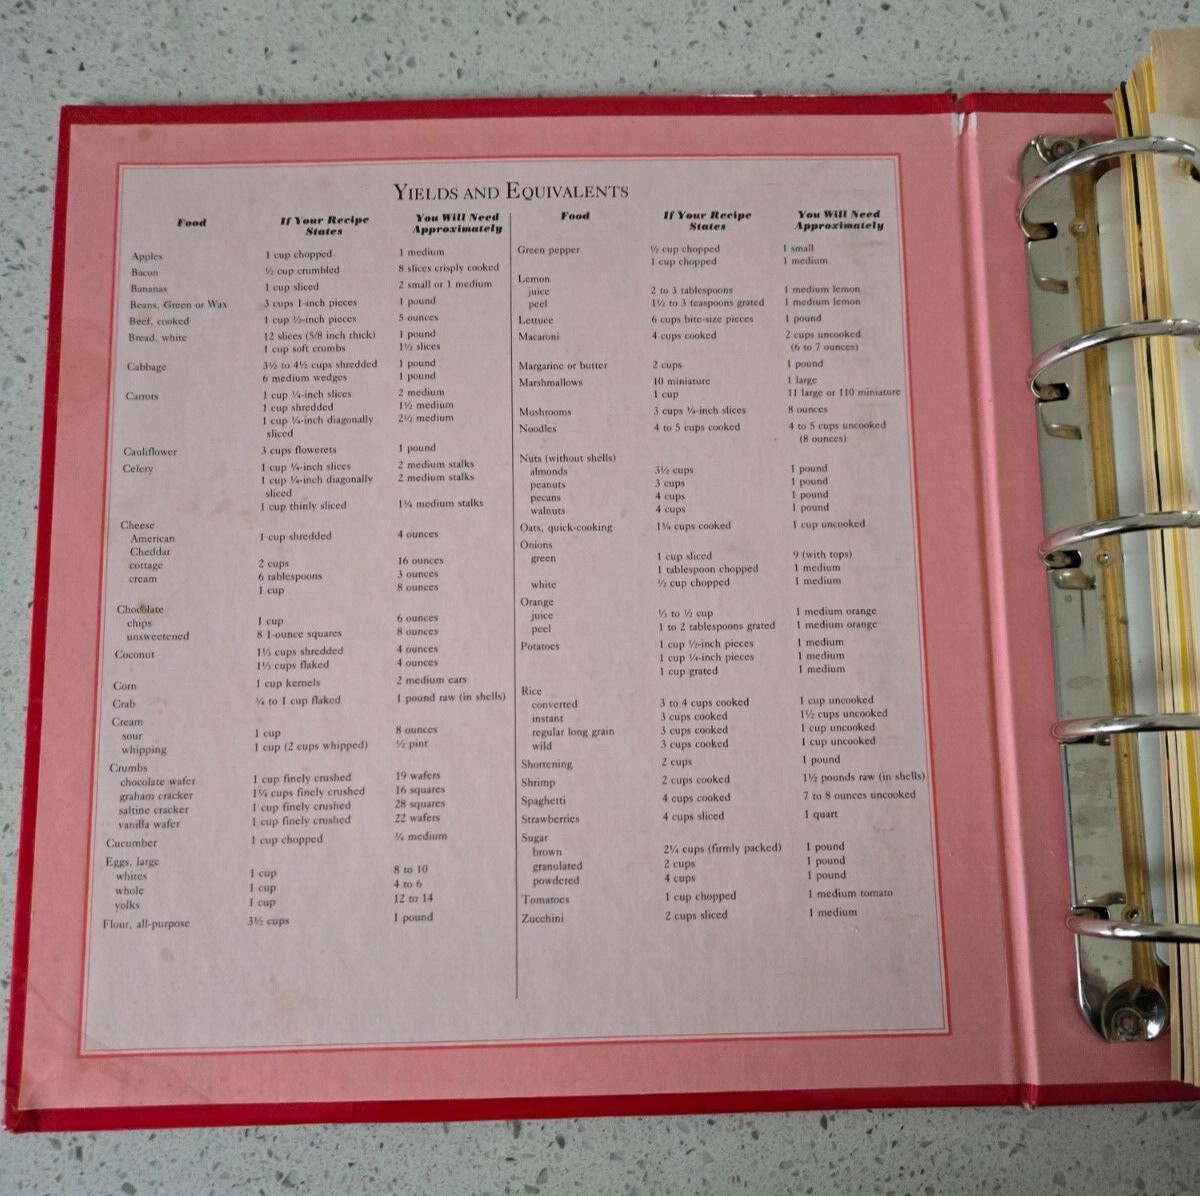 YIELDS AND EQUIVALENTS
Food If Your Recipe States You Will Need Approximately
Apples 1 cup chopped 1 medium
Bacon ½ cup crumbled 8 slices crisply cooked
Bananas 1 cup sliced 2 small or 1 medium
Beans, Green or Wax 3 cups 1-inch pieces 1 pound
Beef, cooked 1 cup ½-inch pieces 5 ounces
Bread, white 12 slices (5/8 inch thick) 1 pound
1 cup soft crumbs 1½ slices
Cabbage 3½ to 4½ cups shredded 1 pound
6 medium wedges 1 pound
Carrots 1 cup ¼-inch slices 2 medium
1 cup shredded 1½ medium
1 cup ¼-inch diagonally 2½ medium
sliced
Cauliflower 3 cups flowerets 1 pound
Celery 1 cup ¼-inch slices 2 medium stalks
1 cup ¼-inch diagonally 2 medium stalks
sliced
1 cup thinly sliced 1¾ medium stalks
Cheese
American 1 cup shredded 4 ounces
Cheddar
cottage 2 cups 16 ounces
cream 6 tablespoons 3 ounces
1 cup 8 ounces
Chocolate
chips 1 cup 6 ounces
unsweetened 8 1-ounce squares 8 ounces
Coconut 1⅓ cups shredded 4 ounces
1⅓ cups flaked 4 ounces
Corn 1 cup kernels 2 medium ears
Crab ¾ to 1 cup flaked 1 pound raw (in shells)
Cream
sour 1 cup 8 ounces
whipping 1 cup (2 cups whipped) ½ pint
Crumbs
chocolate wafer 1 cup finely crushed 19 wafers
graham cracker 1¼ cups finely crushed 16 squares
saltine cracker 1 cup finely crushed 28 squares
vanilla wafer 1 cup finely crushed 22 wafers
Cucumber 1 cup chopped ¾ medium
Eggs, large
whites 1 cup 8 to 10
whole 1 cup 4 to 6
yolks 1 cup 12 to 14
Flour, all-purpose 3½ cups 1 pound
Food If Your Recipe States You Will Need Approximately
Green pepper ½ cup chopped 1 small
1 cup chopped 1 medium
Lemon
juice 2 to 3 tablespoons 1 medium lemon
peel 1½ to 3 teaspoons grated 1 medium lemon
Lettuce 6 cups bite-size pieces 1 pound
Macaroni 4 cups cooked 2 cups uncooked
(6 to 7 ounces)
Margarine or butter 2 cups 1 pound
Marshmallows 10 miniature 1 large
1 cup 11 large or 110 miniature
Mushrooms 3 cups ¼-inch slices 8 ounces
Noodles 4 to 5 cups cooked 4 to 5 cups uncooked
(8 ounces)
Nuts (without shells)
almonds 3½ cups 1 pound
peanuts 3 cups 1 pound
pecans 4 cups 1 pound
walnuts 4 cups 1 pound
Oats, quick-cooking 1¾ cups cooked 1 cup uncooked
Onions
green 1 cup sliced 9 (with tops)
1 tablespoon chopped 1 medium
white ½ cup chopped 1 medium
Orange
juice ⅓ to ½ cup 1 medium orange
peel 1 to 2 tablespoons grated 1 medium orange
Potatoes 1 cup ½-inch pieces 1 medium
1 cup ¼-inch pieces 1 medium
1 cup grated 1 medium
Rice
converted 3 to 4 cups cooked 1 cup uncooked
instant 3 cups cooked 1½ cups uncooked
regular long grain 3 cups cooked 1 cup uncooked
wild 3 cups cooked 1 cup uncooked
Shortening 2 cups 1 pound
Shrimp 2 cups cooked 1½ pounds raw (in shells)
Spaghetti 4 cups cooked 7 to 8 ounces uncooked
Strawberries 4 cups sliced 1 quart
Sugar
brown 2¼ cups (firmly packed) 1 pound
granulated 2 cups 1 pound
powdered 4 cups 1 pound
Tomatoes 1 cup chopped 1 medium tomato
Zucchini 2 cups sliced 1 medium